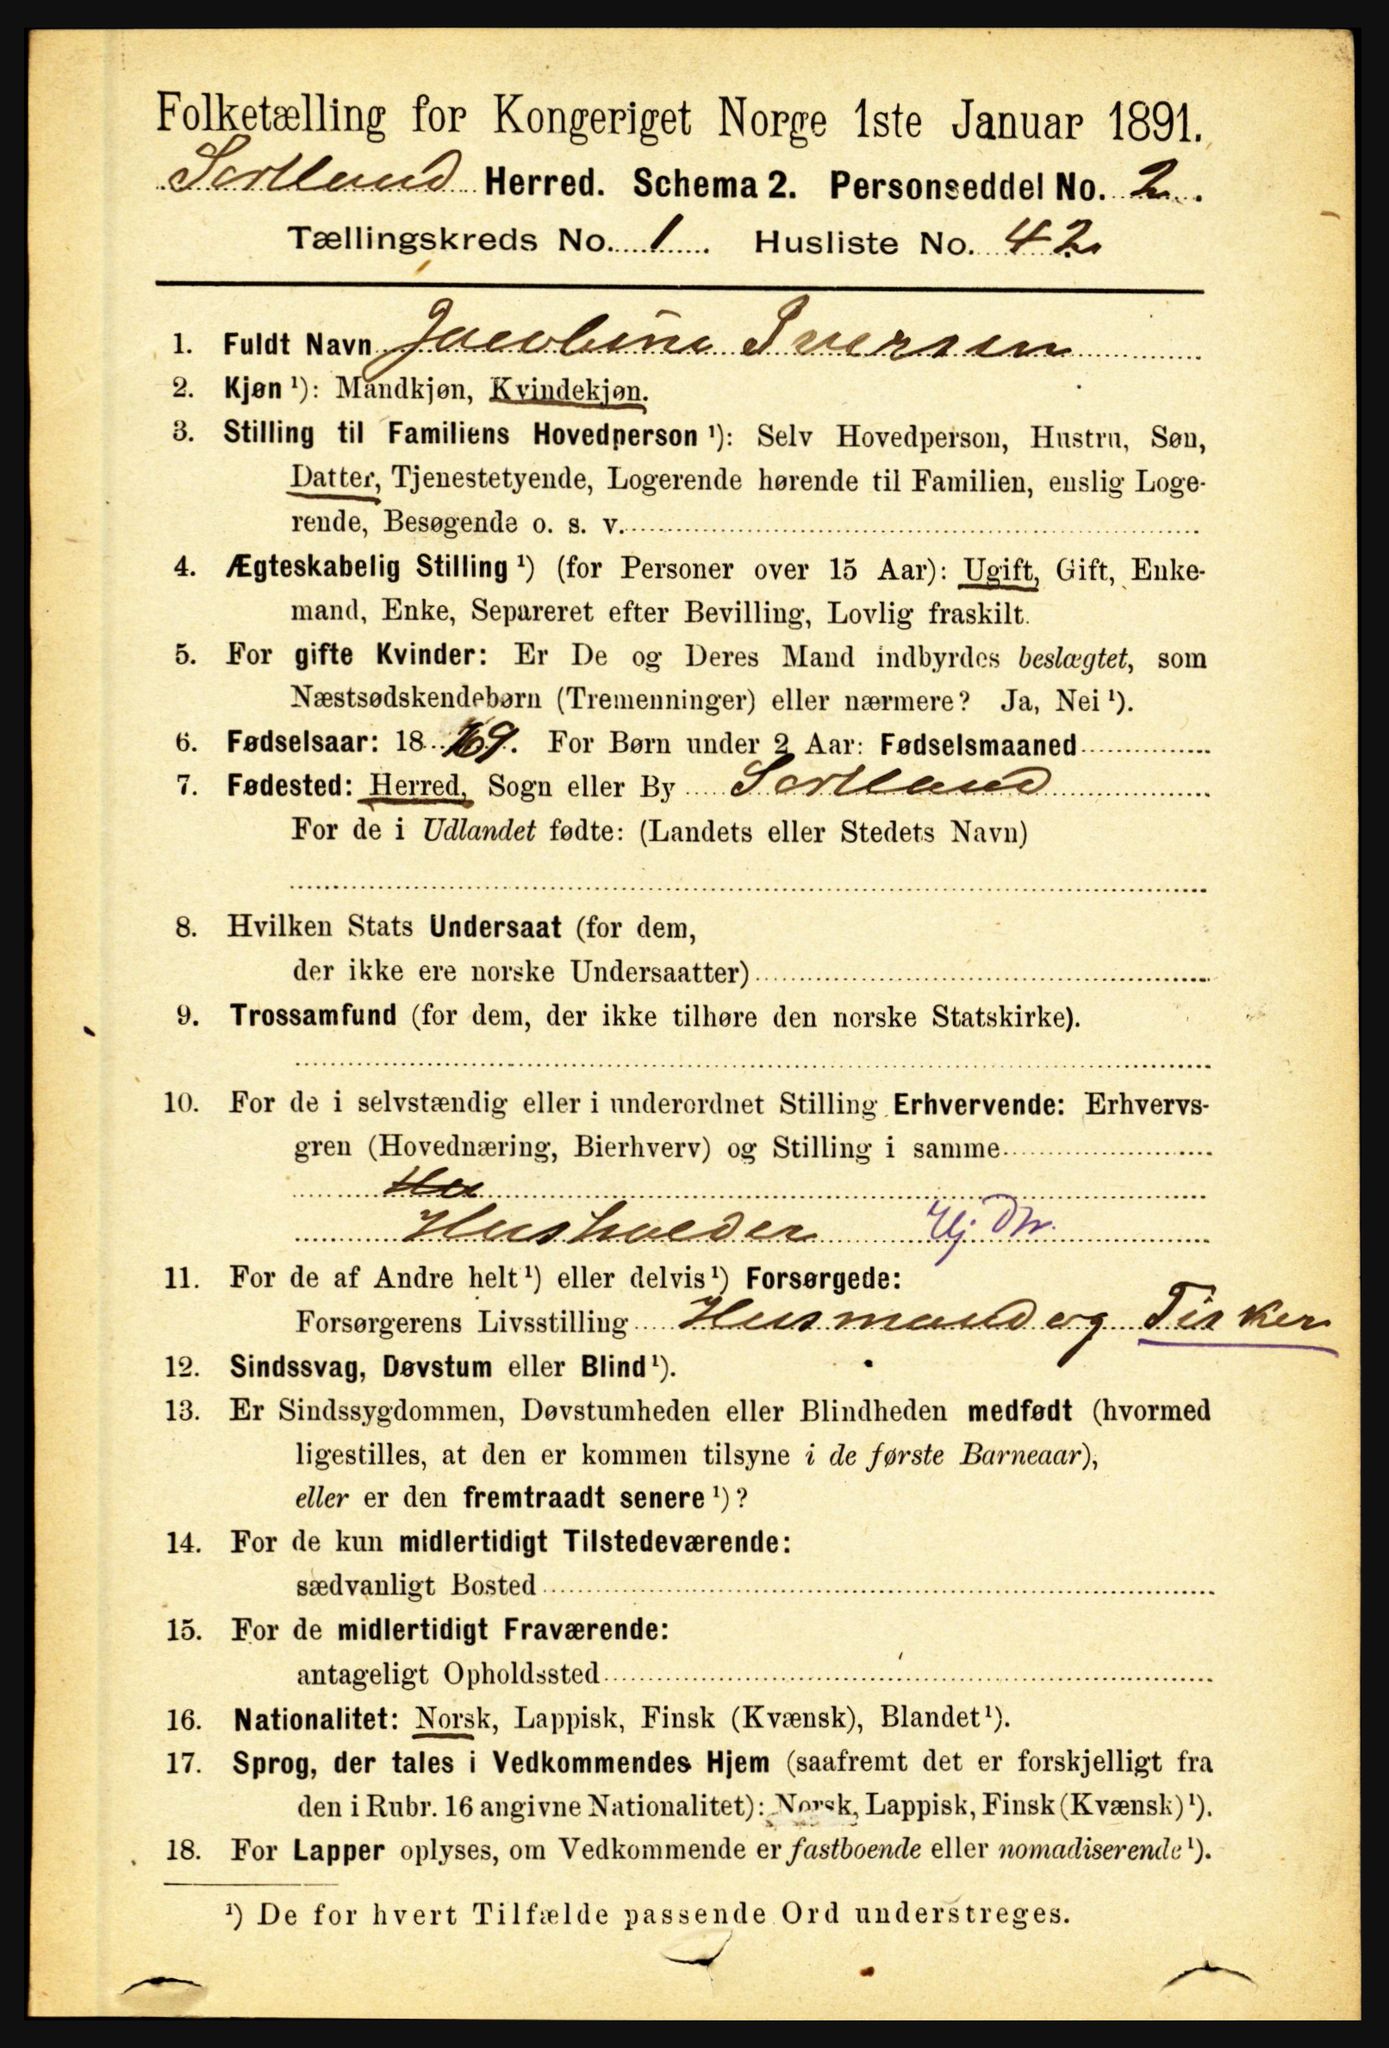 Folketælling for Kongeriget Norge 1ste Januar 1891.
Sortland Herred. Schema 2. Personseddel No. 2.
Tællingskreds No. 1. Husliste No. 42
1. Fuldt Navn Jacobine Iversen
2. Kjøn ¹): Mandkjøn, Kvindekjøn.
3. Stilling til Familiens Hovedperson ¹): Selv Hovedperson, Hustru, Søn,
Datter, Tjenestetyende, Logerende hørende til Familien, enslig Loge-
rende, Besøgende o. s. v.
4. Ægteskabelig Stilling ¹) (for Personer over 15 Aar): Ugift, Gift, Enke-
mand, Enke, Separeret efter Bevilling, Lovlig fraskilt.
5. For gifte Kvinder: Er De og Deres Mand indbyrdes beslægtet, som
Næstsødskendebørn (Tremenninger) eller nærmere? Ja, Nei ¹).
6. Fødselsaar: 18 69. For Børn under 2 Aar: Fødselsmaaned
7. Fødested: Herred, Sogn eller By Sortland
For de i Udlandet fødte: (Landets eller Stedets Navn)
8. Hvilken Stats Undersaat (for dem,
der ikke ere norske Undersaatter)
9. Trossamfund (for dem, der ikke tilhøre den norske Statskirke).
10. For de i selvstændig eller i underordnet Stilling Erhvervende: Erhvervs-
gren (Hovednæring, Bierhverv) og Stilling i samme
Hus
Husholder Hj Dtr.
11. For de af Andre helt ¹) eller delvis ¹) Forsørgede:
Forsørgerens Livsstilling Husmand og Fisker
12. Sindssvag, Døvstum eller Blind ¹).
13. Er Sindssygdommen, Døvstumheden eller Blindheden medfødt (hvormed
ligestilles, at den er kommen tilsyne i de første Barneaar),
eller er den fremtraadt senere ¹)?
14. For de kun midlertidigt Tilstedeværende:
sædvanligt Bosted
15. For de midlertidigt Fraværende:
antageligt Opholdssted
16. Nationalitet: Norsk, Lappisk, Finsk (Kvænsk), Blandet ¹).
17. Sprog, der tales i Vedkommendes Hjem (saafremt det er forskjelligt fra
den i Rubr. 16 angivne Nationalitet): Norsk, Lappisk, Finsk (Kvænsk) ¹).
18. For Lapper oplyses, om Vedkommende er fastboende eller nomadiserende ¹).
¹) De for hvert Tilfælde passende Ord understreges.